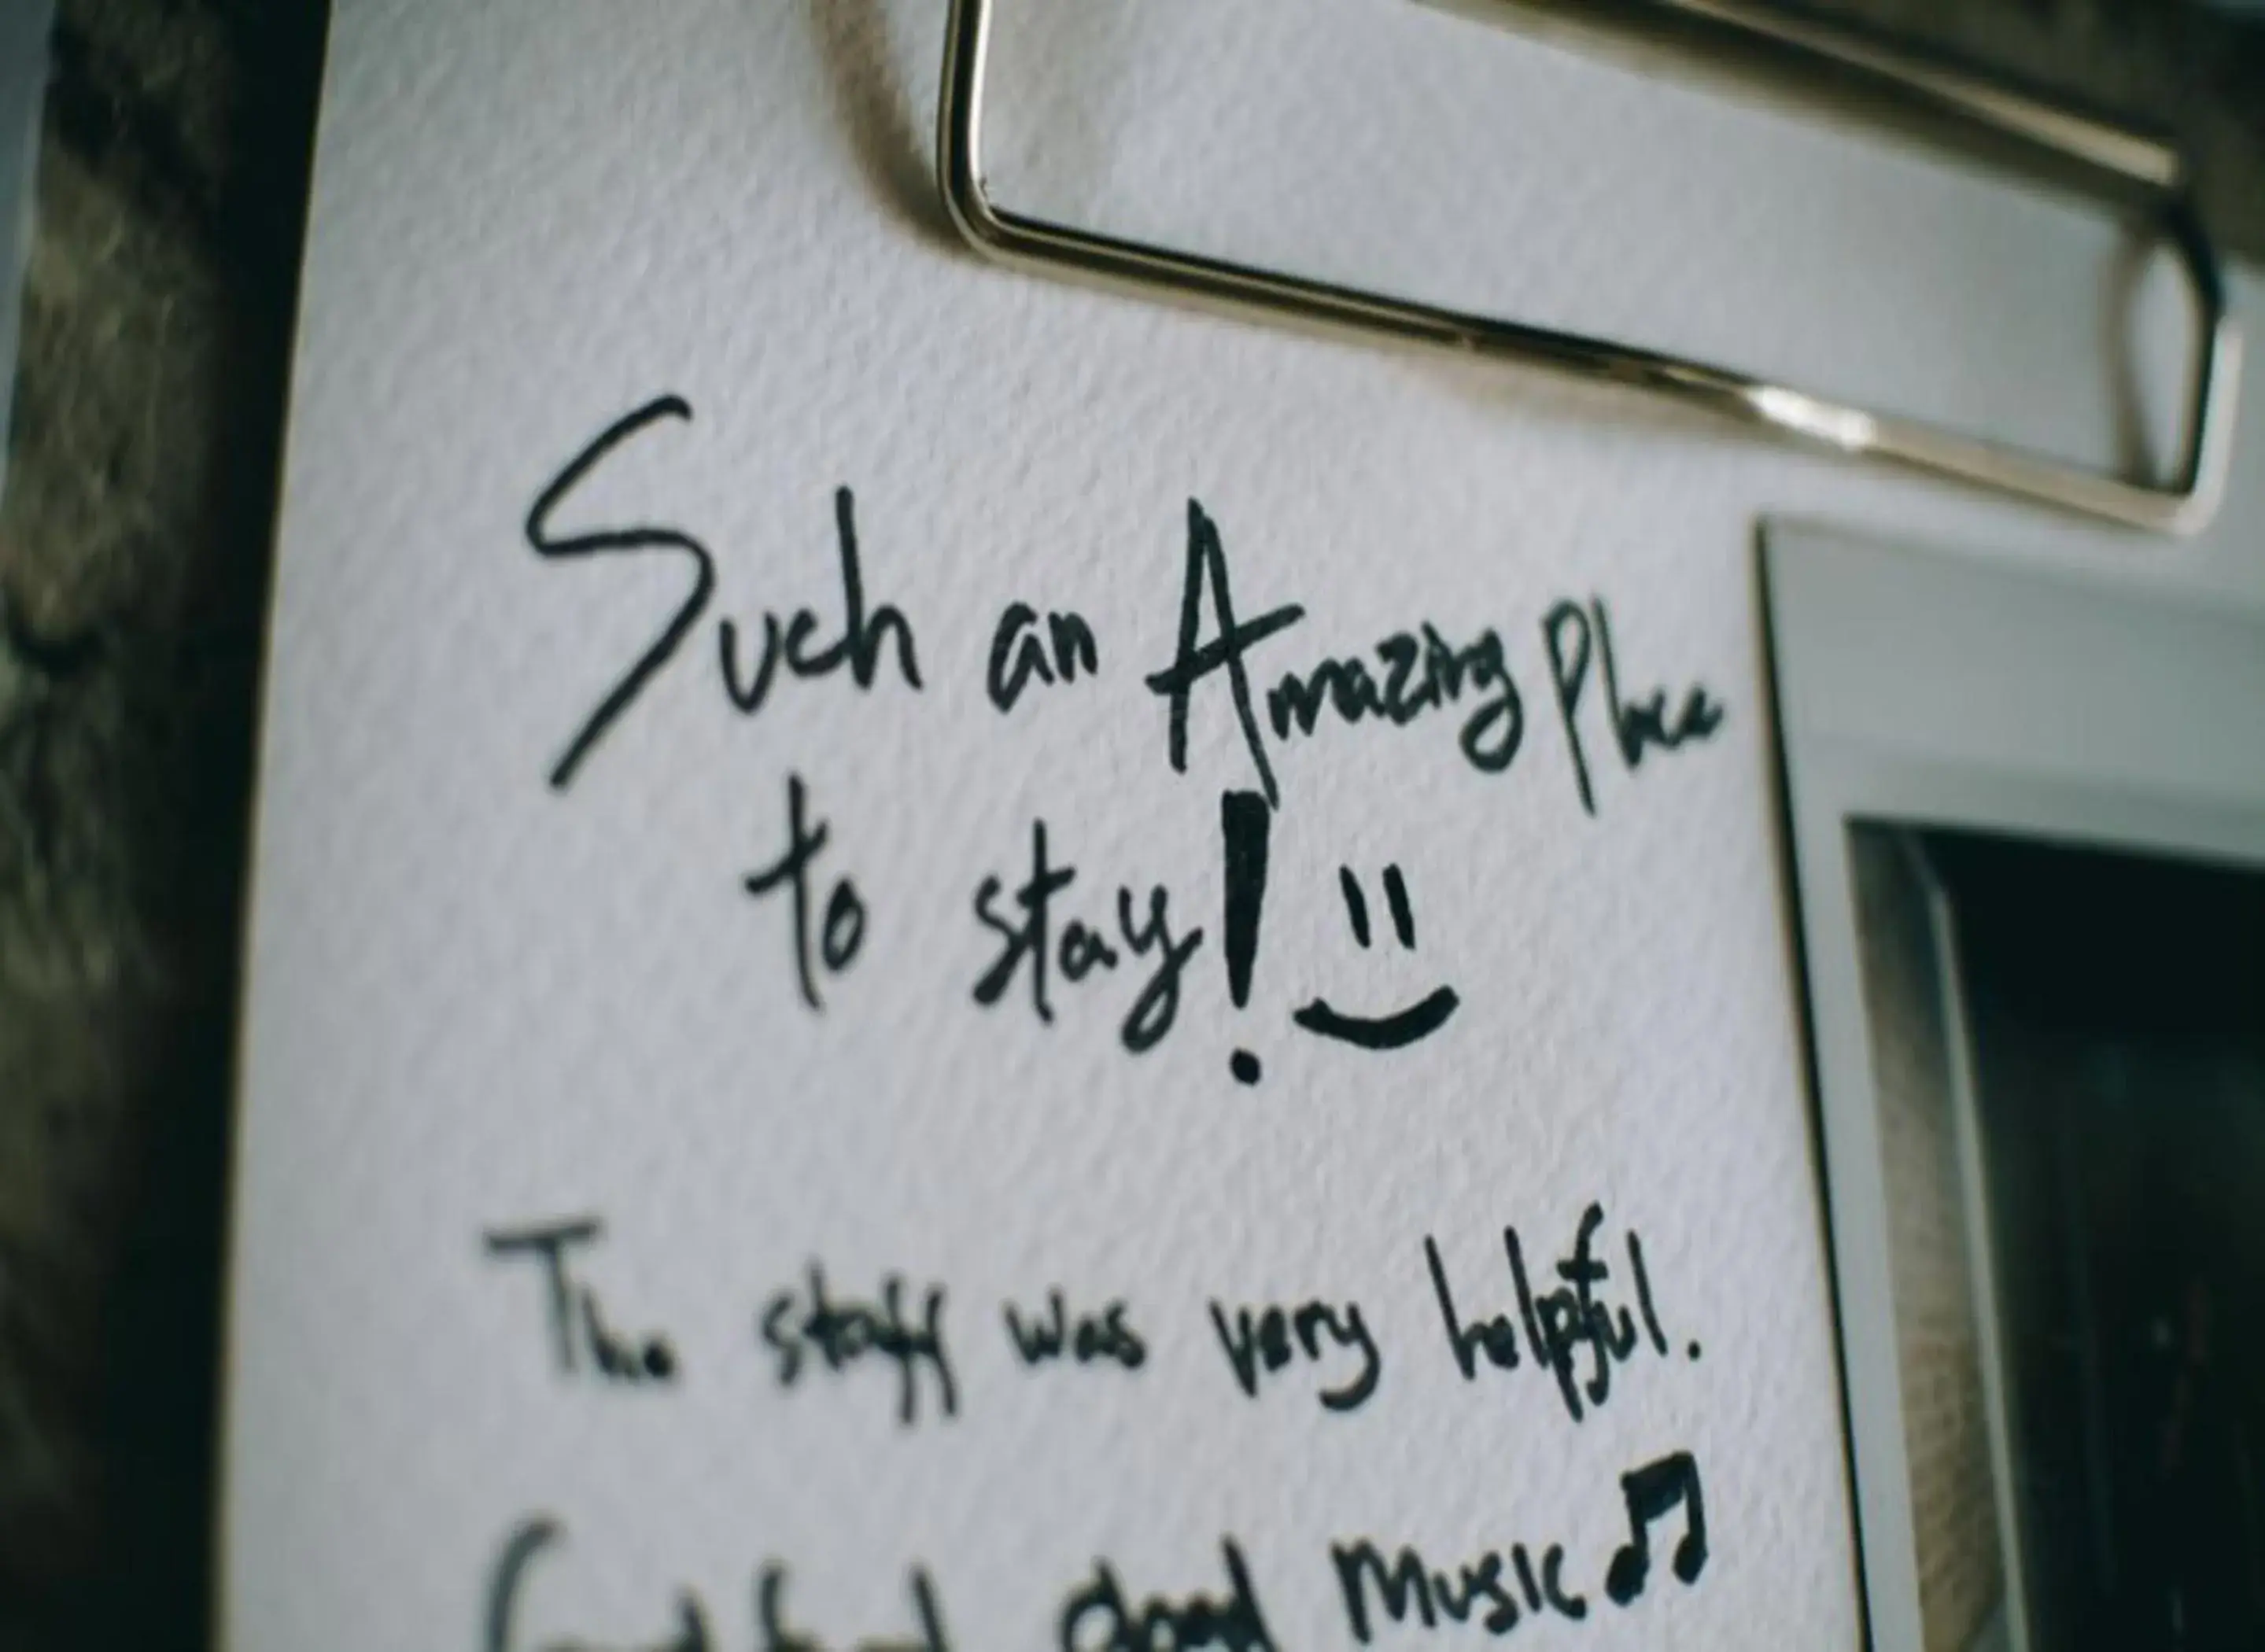 Such an Amazing Place
to stay!
The staff was very helpful.
Good food good Music